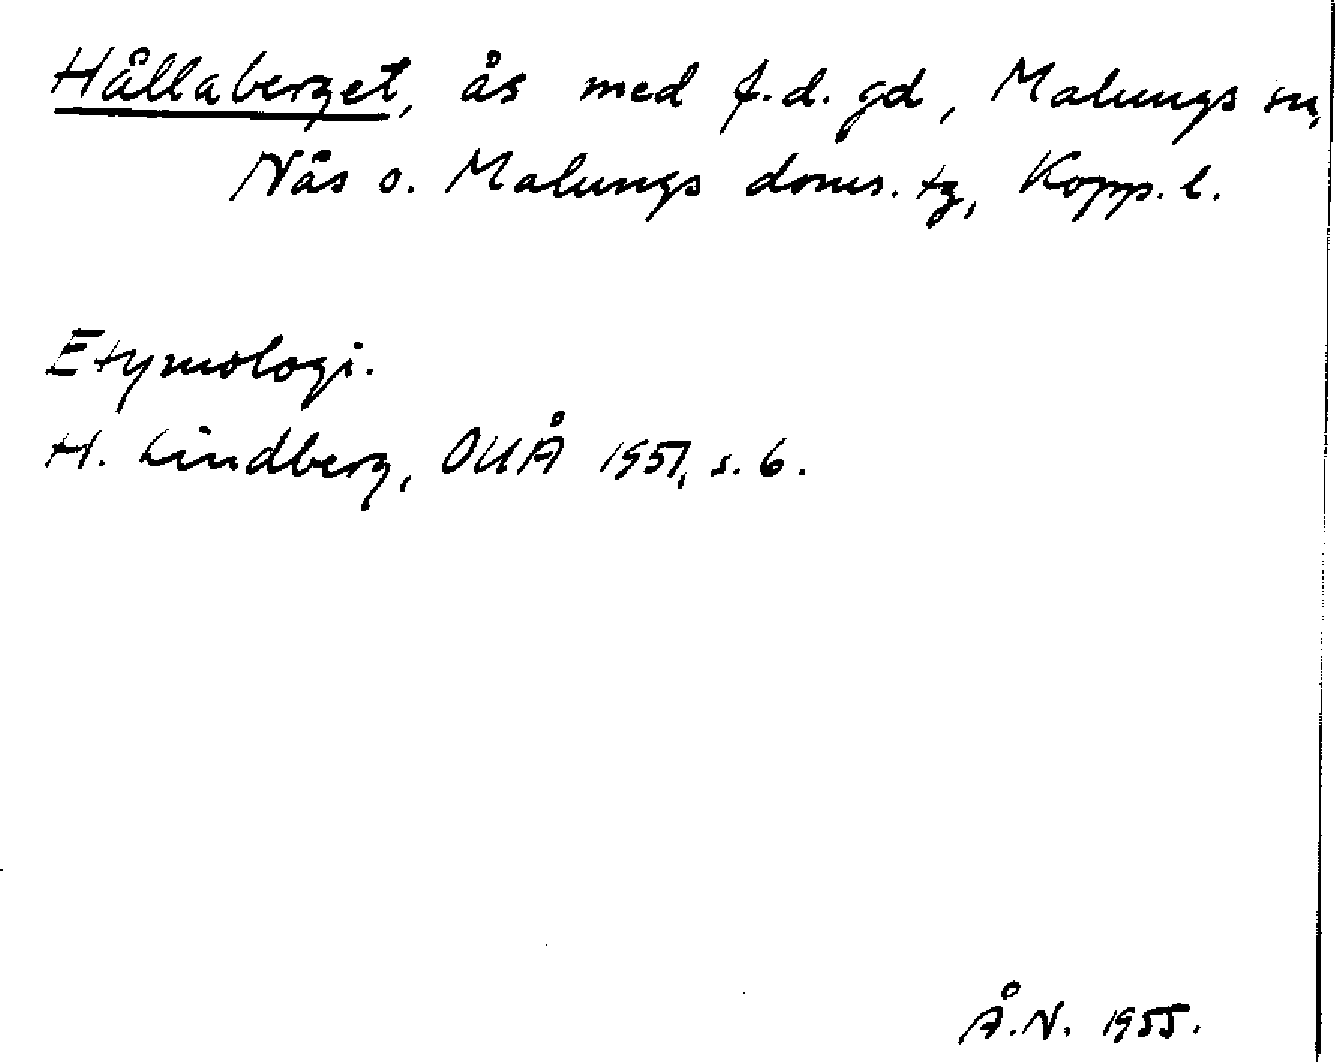 Hållaberget, ås med f.d. gd, Malungs sn,
Nås o. Malungs doms. tg, Kopp. l.
Etymologi.
H. Lindberg, OUÅ 1951, s. 6.
Å.N. 1955.